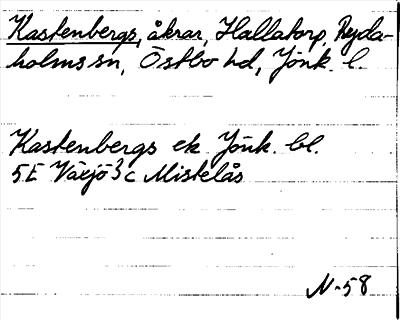 Kastenbergs, åkrar, Hallatorp, Ryda-
holms sn, Östbo hd, Jönk. l.
Kastenbergs ek Jönk. bl.
5E Växjö 3c Mistelås
N-58